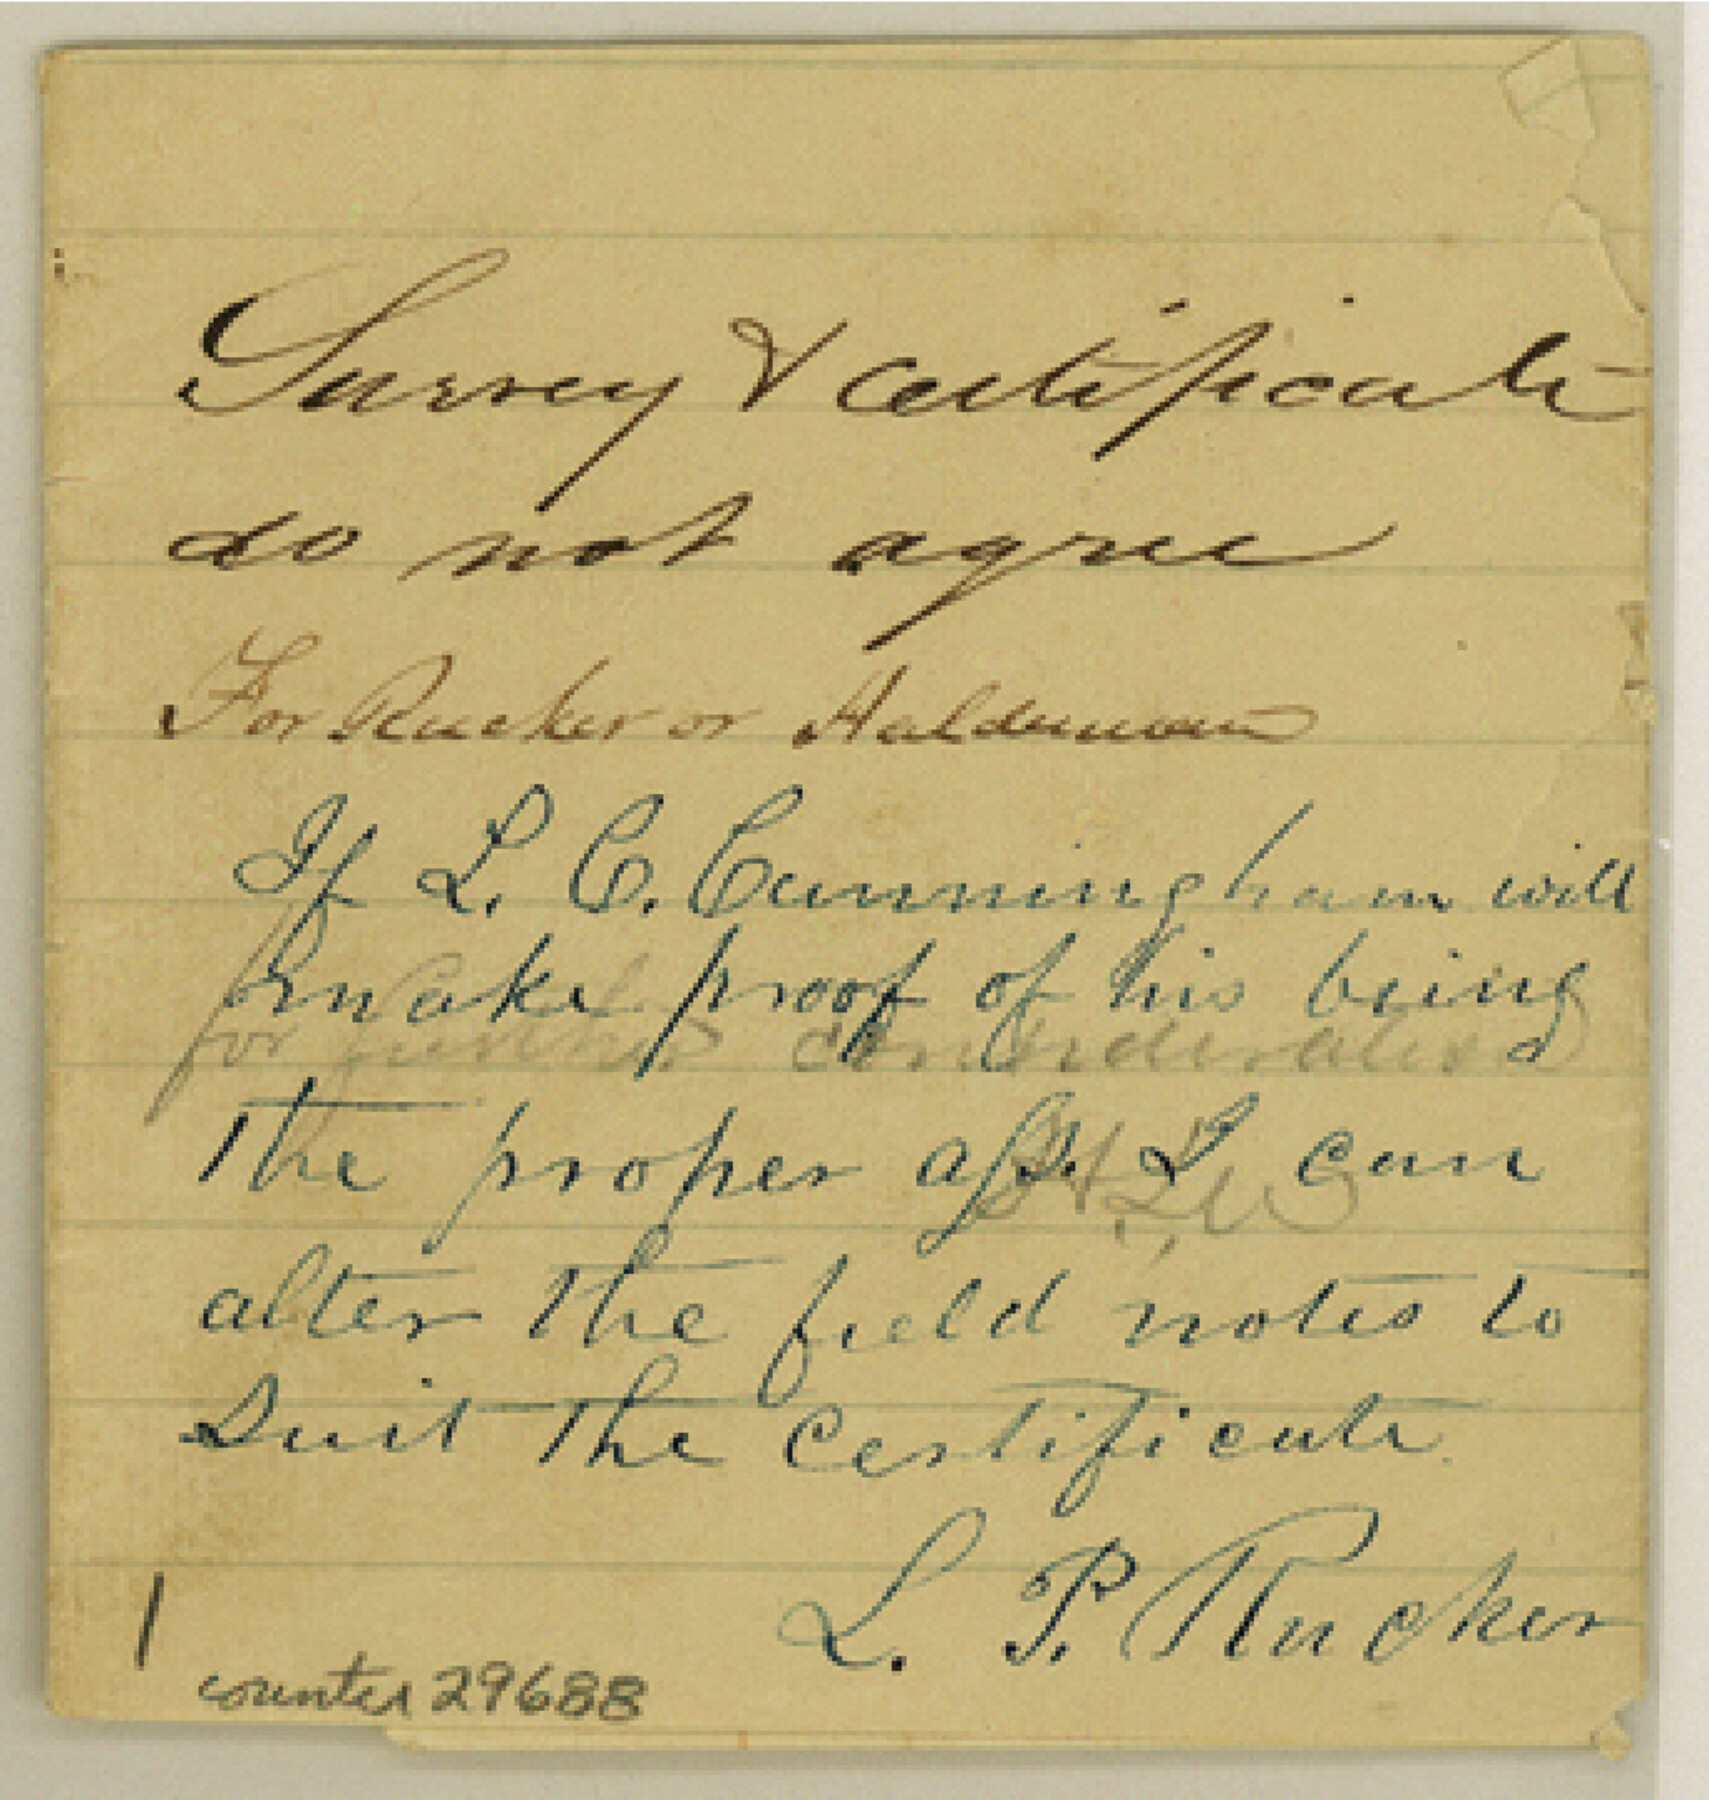 Survey & Certificate
do not agree
For Rucker or Haldeman
If L. C. Cunningham will
make proof of his being
for further consideration
the proper I can
alter the field notes to
Suit the Certificate.
L. P. Rucker
counter 29688